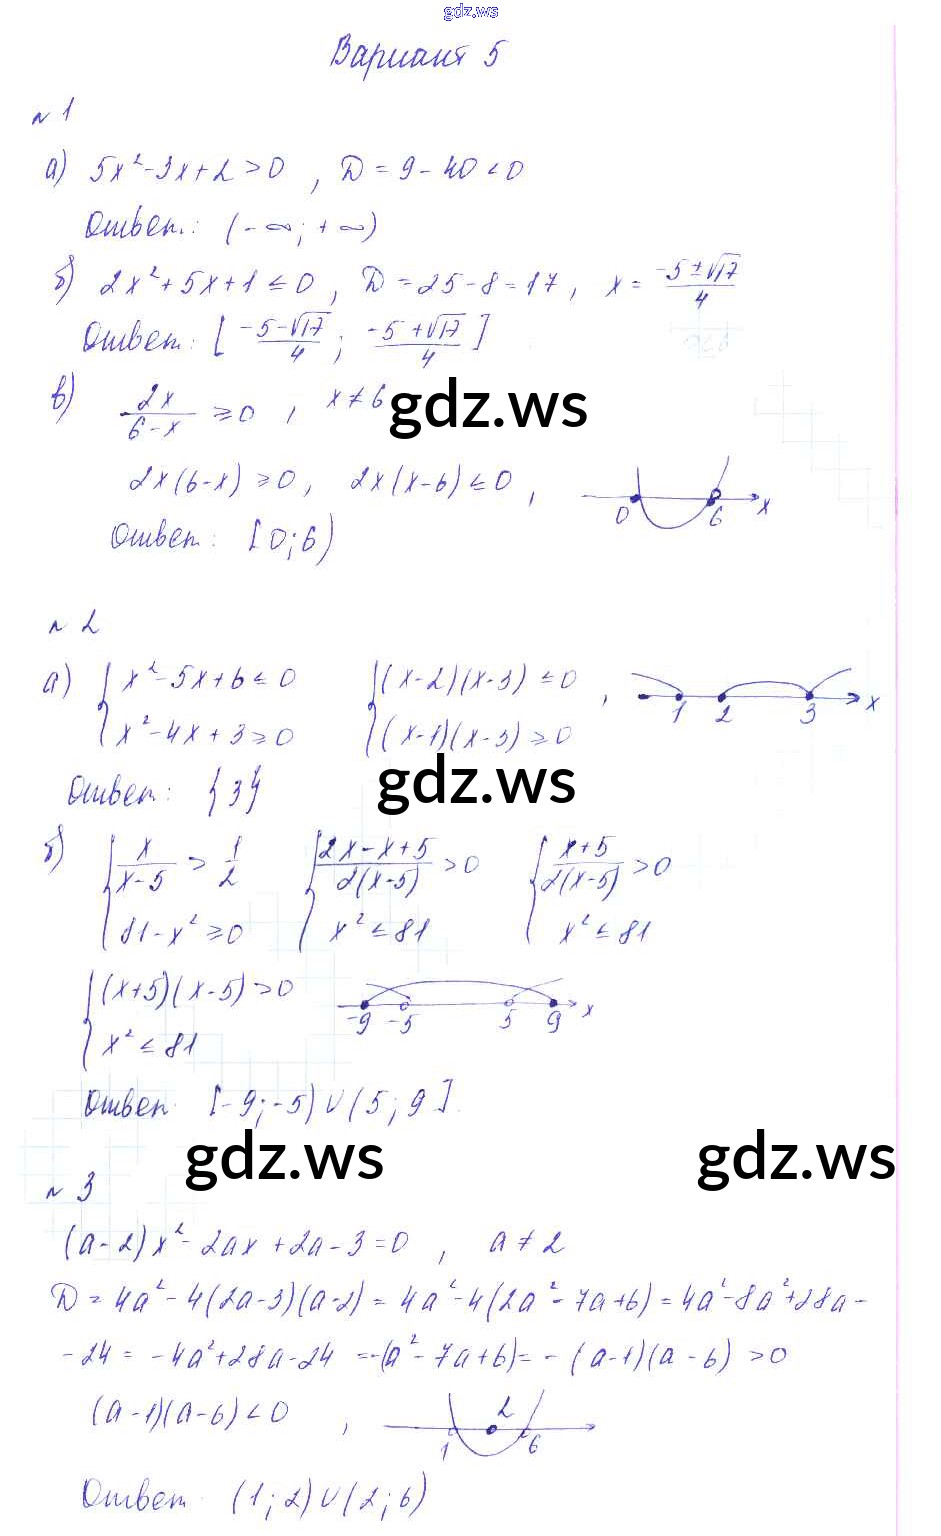 gdz.ws
Вариант 5
№ 1
а) 5x² - 3x + 2 > 0 , D = 9 - 40 < 0
Ответ: (-∞; +∞)
б) 2x² + 5x + 1 ≤ 0 , D = 25 - 8 = 17 , x = (-5 ± √17)/4
Ответ: [(-5 - √17)/4 ; (-5 + √17)/4]
в) 2x/(6 - x) ≥ 0 , x ≠ 6
gdz.ws
2x(6 - x) ≥ 0 , 2x(x - 6) ≤ 0 , 0 6 x
Ответ: [0; 6)
№ 2
а) { x² - 5x + 6 ≤ 0 { (x - 2)(x - 3) ≤ 0 , 1 2 3 x
{ x² - 4x + 3 ≥ 0 { (x - 1)(x - 3) ≥ 0
gdz.ws
Ответ: {3}
б) { x/(x - 5) > 1/2 { (2x - x + 5)/(2(x - 5)) > 0 { (x + 5)/(2(x - 5)) > 0
{ 81 - x² ≥ 0 { x² ≤ 81 { x² ≤ 81
{ (x + 5)(x - 5) > 0 -9 -5 5 9 x
{ x² ≤ 81
Ответ: [-9; -5) ∪ (5; 9].
gdz.ws gdz.ws
№ 3
(a - 2)x² - 2ax + 2a - 3 = 0 , a ≠ 2
D = 4a² - 4(2a - 3)(a - 2) = 4a² - 4(2a² - 7a + 6) = 4a² - 8a² + 28a -
- 24 = -4a² + 28a - 24 = -(a² - 7a + 6) = -(a - 1)(a - 6) > 0
(a - 1)(a - 6) < 0 , 1 2 6
Ответ: (1; 2) ∪ (2; 6)